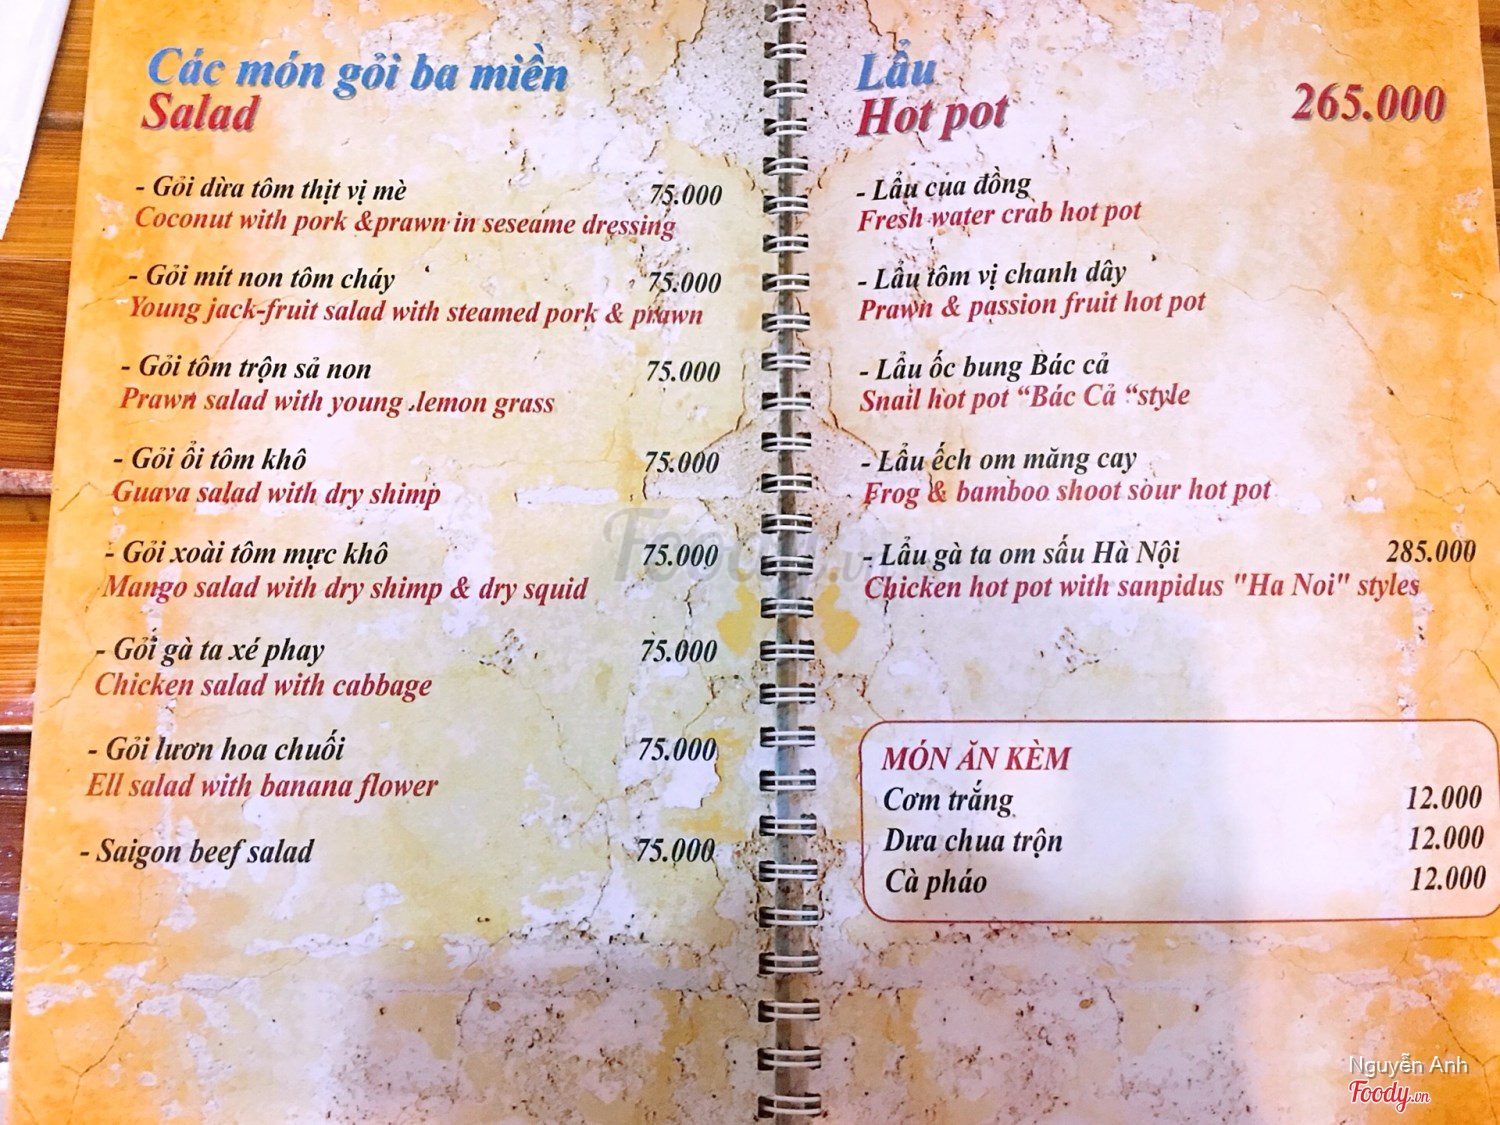 Các món gỏi ba miền
Salad
- Gỏi dừa tôm thịt vị mè 75.000
Coconut with pork &prawn in seseame dressing
- Gỏi mít non tôm cháy 75.000
Young jack-fruit salad with steamed pork & prawn
- Gỏi tôm trộn sả non 75.000
Prawn salad with young lemon grass
- Gỏi ổi tôm khô 75.000
Guava salad with dry shimp
- Gỏi xoài tôm mực khô 75.000
Mango salad with dry shimp & dry squid
- Gỏi gà ta xé phay 75.000
Chicken salad with cabbage
- Gỏi lươn hoa chuối 75.000
Ell salad with banana flower
- Saigon beef salad 75.000
Lẩu
Hot pot 265.000
- Lẩu cua đồng
Fresh water crab hot pot
- Lẩu tôm vị chanh dây
Prawn & passion fruit hot pot
- Lẩu ốc bung Bác cả
Snail hot pot “Bác Cả “style
- Lẩu ếch om măng cay
Frog & bamboo shoot sour hot pot
- Lẩu gà ta om sấu Hà Nội 285.000
Chicken hot pot with sanpidus "Ha Noi" styles
MÓN ĂN KÈM
Cơm trắng 12.000
Dưa chua trộn 12.000
Cà pháo 12.000
Foody.vn
Nguyễn Anh
Foody.vn